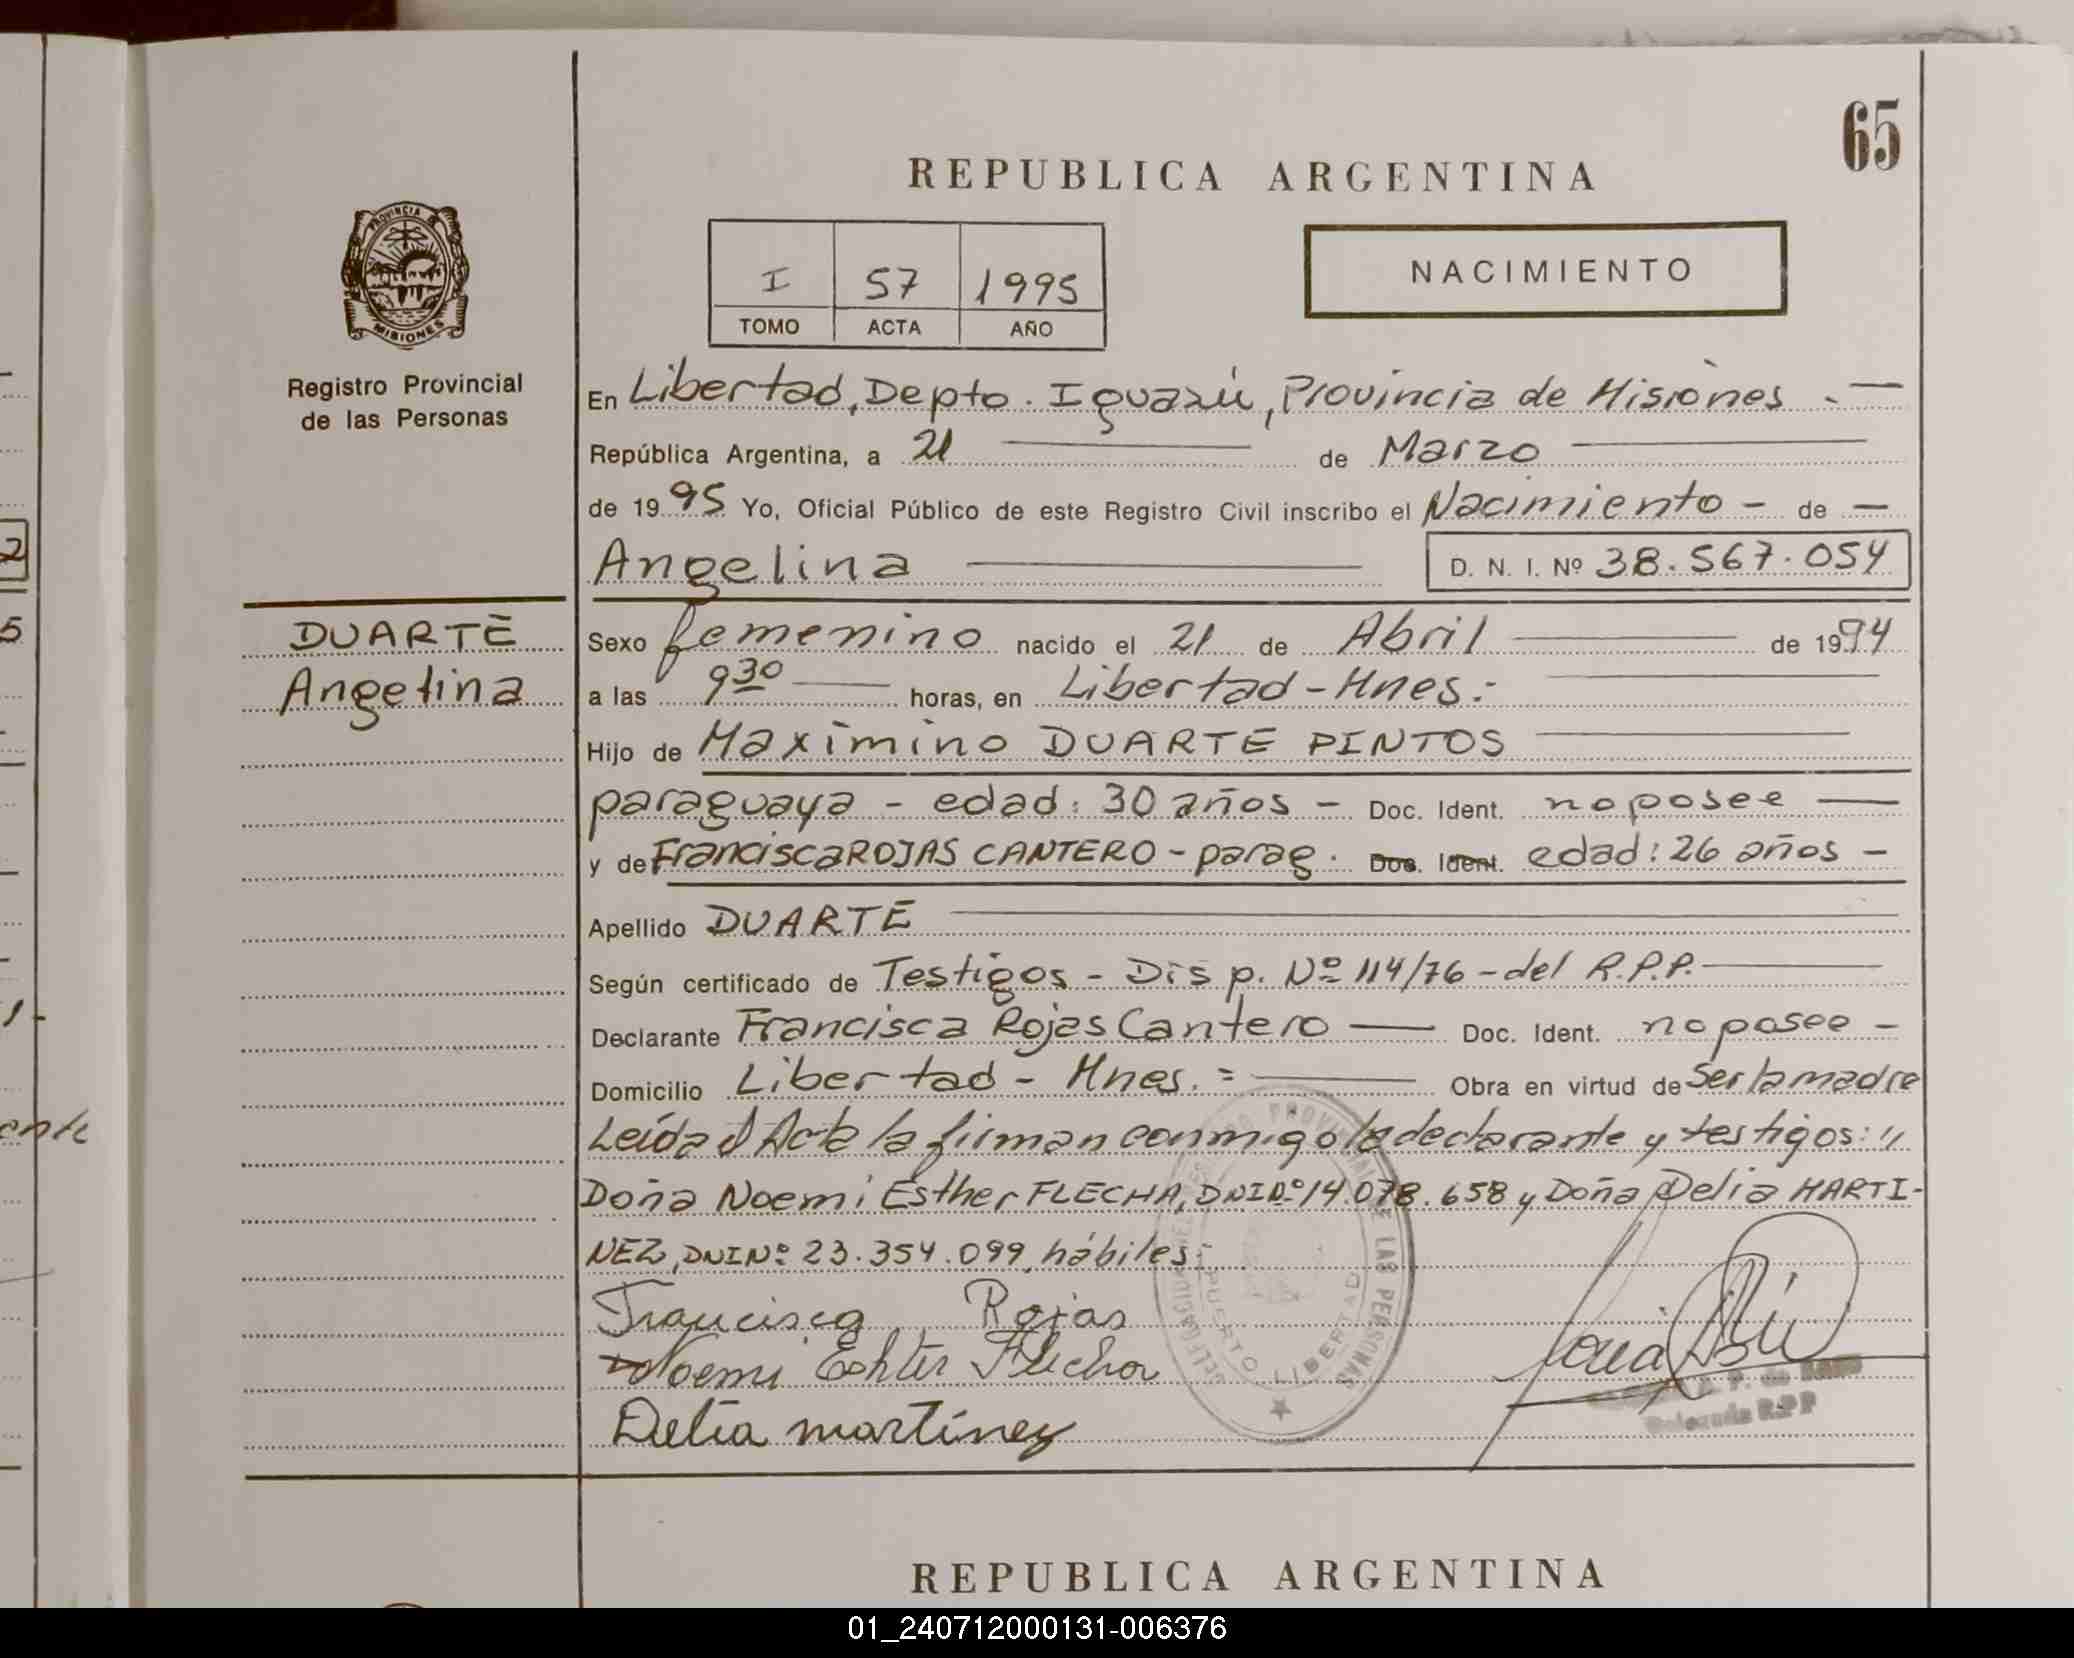 65
REPUBLICA ARGENTINA
PROVINCIA DE
MISIONES
I 57 1995
TOMO ACTA AÑO
NACIMIENTO
Registro Provincial
de las Personas
En Libertad, Depto. Iguazú, Provincia de Misiones.—
República Argentina, a 21 de Marzo
de 1995 Yo, Oficial Público de este Registro Civil inscribo el Nacimiento - de —
Angelina D. N. I. Nº 38.567.054
DUARTE
Angelina
Sexo femenino nacido el 21 de Abril de 1994
a las 9 30 horas, en Libertad - Mnes.-
Hijo de Maximino DUARTE PINTOS
paraguaya - edad: 30 años - Doc. Ident. no posee
y de Francisca ROJAS CANTERO - parag. Doc. Ident. edad: 26 años -
Apellido DUARTE
Según certificado de Testigos - Disp. Nº 114/76 - del R.P.P.
Declarante Francisca Rojas Cantero Doc. Ident. no posee -
Domicilio Libertad - Mnes. = Obra en virtud de Ser la madre
Leída el Acta la firman conmigo la declarante y testigos: "
Doña Noemi Esther FLECHA, DNI Nº 14.078.658 y Doña Delia MARTI-
NEZ, DNI Nº 23.354.099, hábiles:
Francisca Rojas
Noemi Eshter Flecha
Delia martinez
PROVINCIAL DE LAS PERSONAS
PUERTO LIBERTAD
Delegada R.P.P
REPUBLICA ARGENTINA
01_240712000131-006376